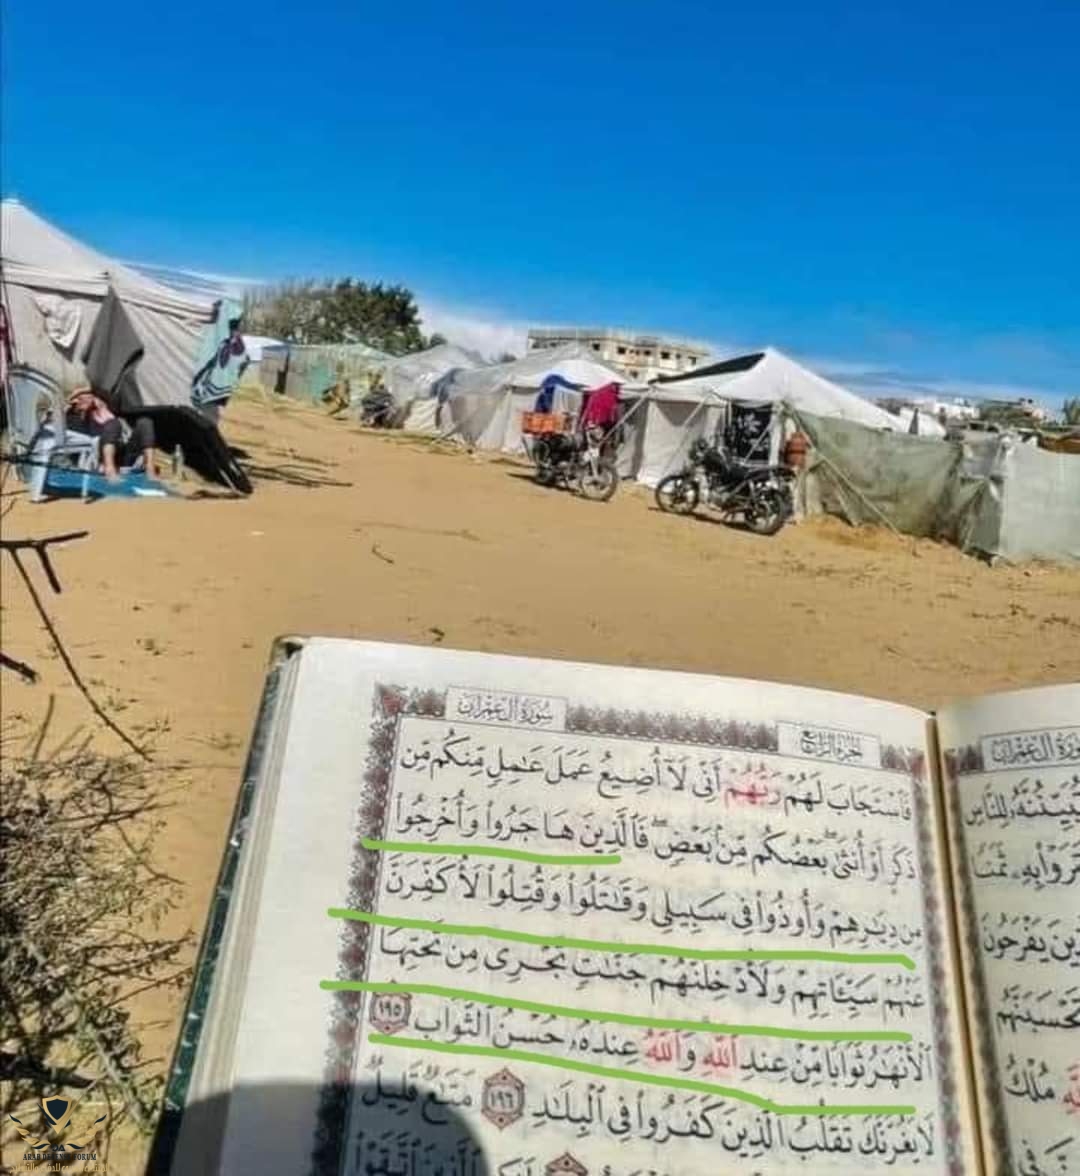 سُورَةُ آلِ عِمْرَانَ
الجُزءُ الرَّابِعُ
فَٱسْتَجَابَ لَهُمْ رَبُّهُمْ أَنِّى لَآ أُضِيعُ عَمَلَ عَـٰمِلٍ مِّنكُم مِّن
ذَكَرٍ أَوْ أُنثَىٰ ۖ بَعْضُكُم مِّنۢ بَعْضٍ ۖ فَٱلَّذِينَ هَاجَرُوا۟ وَأُخْرِجُوا۟
مِن دِيَـٰرِهِمْ وَأُوذُوا۟ فِى سَبِيلِى وَقَـٰتَلُوا۟ وَقُتِلُوا۟ لَأُكَفِّرَنَّ
عَنْهُمْ سَيِّـَٔاتِهِمْ وَلَأُدْخِلَنَّهُمْ جَنَّـٰتٍ تَجْرِى مِن تَحْتِهَا
ٱلْأَنْهَـٰرُ ثَوَابًا مِّنْ عِندِ ٱللَّهِ ۗ وَٱللَّهُ عِندَهُۥ حُسْنُ ٱلثَّوَابِ ١٩٥
لَا يَغُرَّنَّكَ تَقَلُّبُ ٱلَّذِينَ كَفَرُوا۟ فِى ٱلْبِلَـٰدِ ١٩٦ مَتَـٰعٌ قَلِيلٌ
سُورَةُ آلِ عِمْرَانَ
لِلنَّاسِ
يَفْرَحُونَ
مُلْكُ
ARAB DEFENSE FORUM